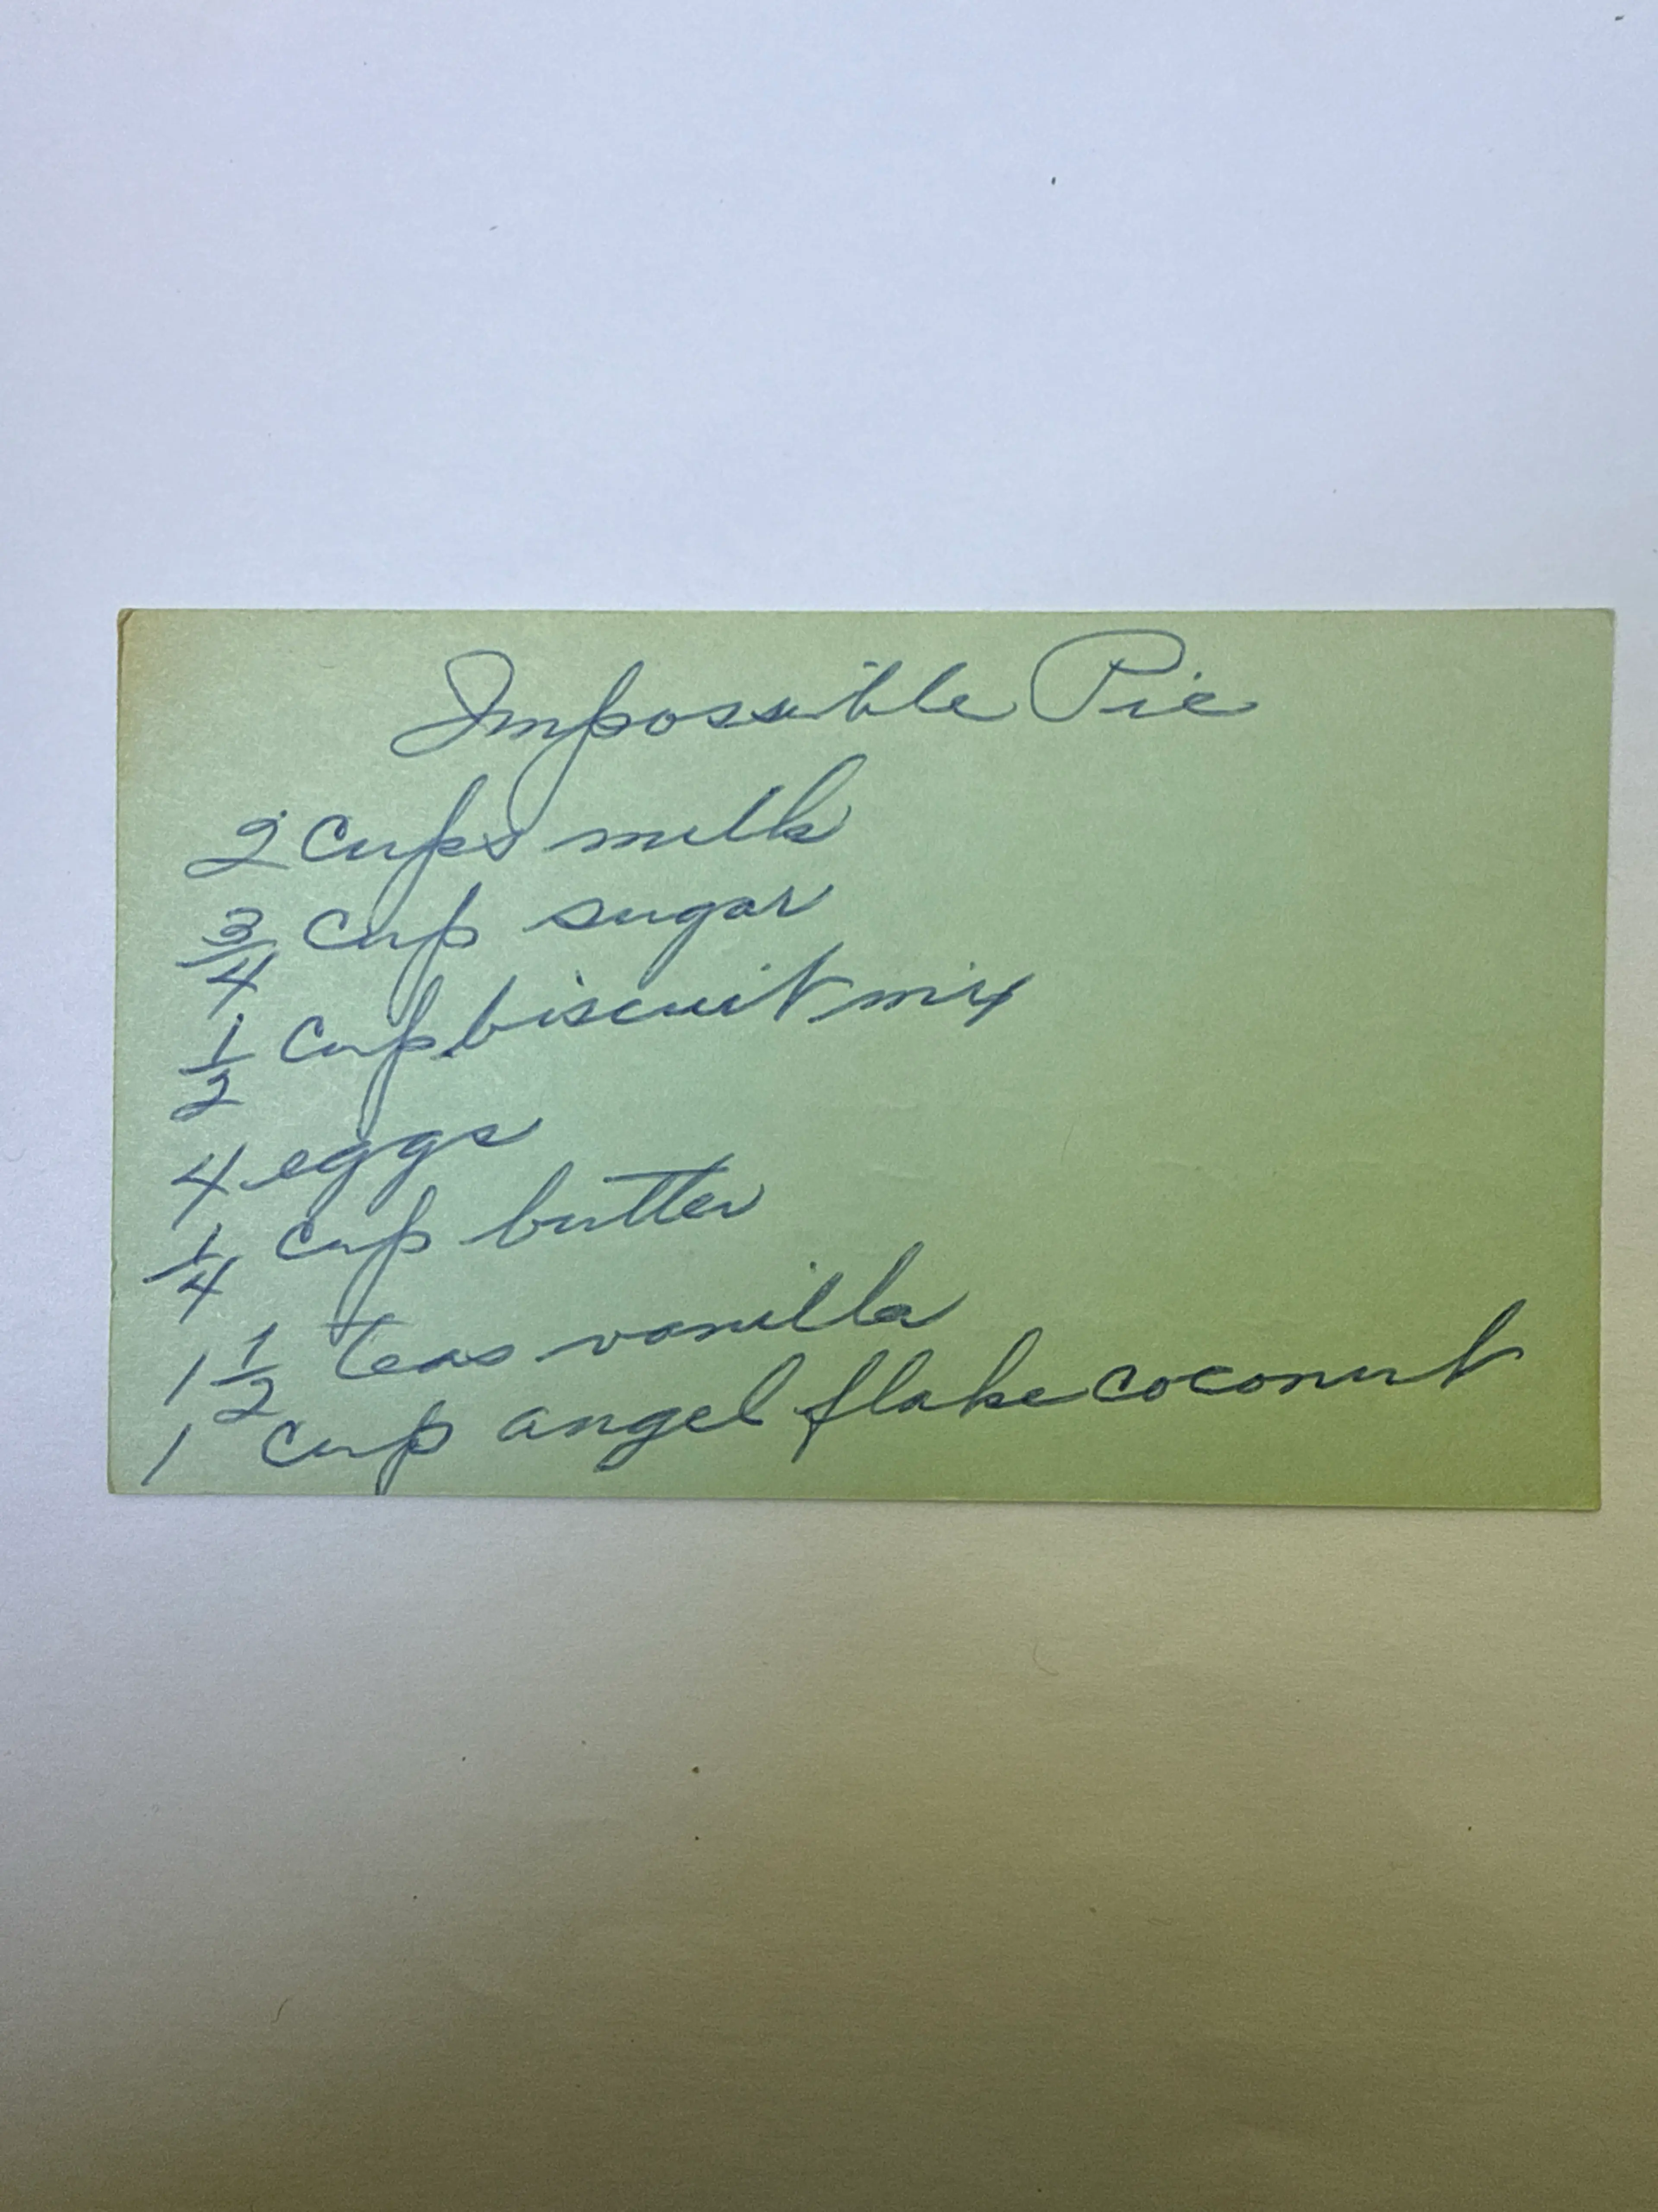 Impossible Pie
2 cups milk
3/4 cup sugar
1/2 cup biscuit mix
4 eggs
1/4 cup butter
1 1/2 teas vanilla
1 cup angel flake coconut